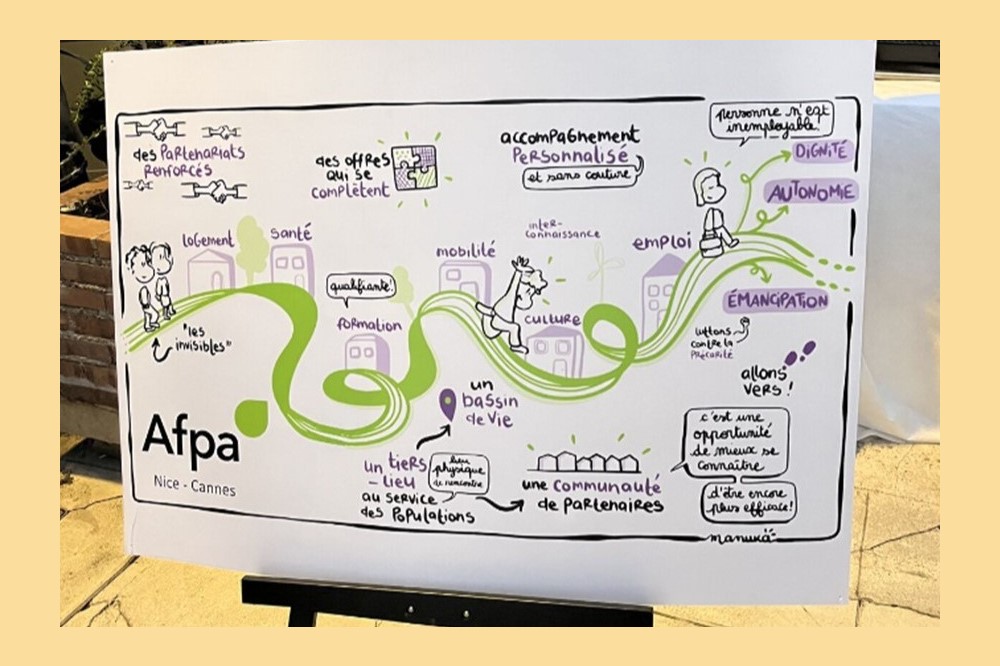 des Partenariats
renforcés
des offres
qui se
complètent
accompagnement
Personnalisé
et sans couture
personne n'est
inemployable!
DIGNITÉ
AUTONOMIE
ÉMANCIPATION
logement
santé
"les
invisibles"
qualifiante!
formation
mobilité
inter-
connaissance
culture
emploi
luttons
contre la
précarité
allons
vers!
Afpa
Nice - Cannes
un
bassin
de vie
un tiers
- lieu
au service
des Populations
lieu
physique
de rencontre
une communauté
de partenaires
c'est une
opportunité
de mieux se
connaître
d'être encore
plus efficace!
manuka